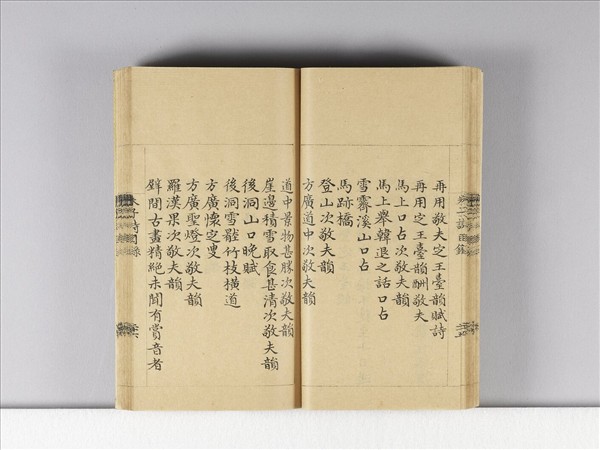 再用敬夫定王臺韻賦詩
再用定王臺韻酬敬夫
馬上口占次敬夫韻
馬上舉韓退之話口占
雪霽溪山口占
馬跡橋
登山次敬夫韻
方廣道中次敬夫韻
道中景物甚勝次敬夫韻
崖邊積雪取食甚清次敬夫韻
後洞山口晚賦
後洞雪壓竹枝橫道
方廣懷定叟
方廣聖燈次敬夫韻
羅漢果次敬夫韻
壁間古畫精絕未聞有賞音者